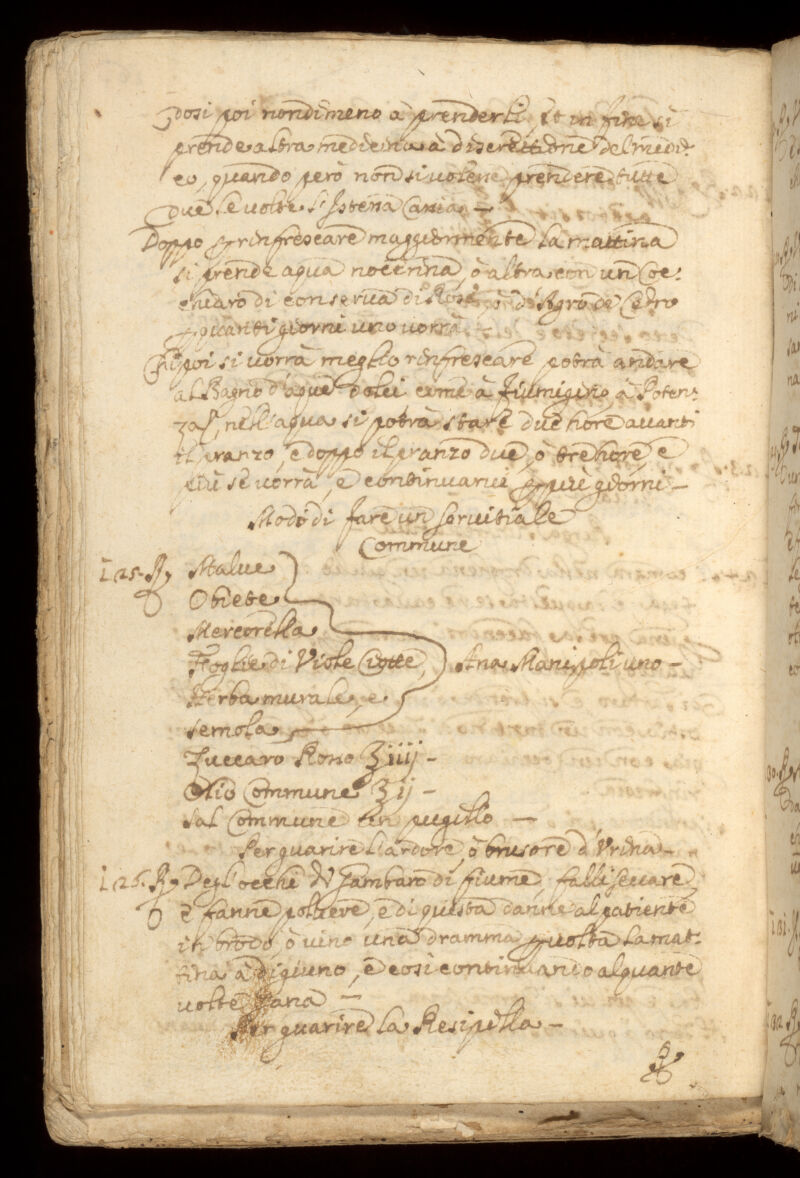 dosi poi nondimeno à prenderli, et in fine si
prende altra medicina à discrettione del medi-
co, quando però non si volene prendere tutte
due le volte l'istessa Cassia —
Doppo p rinfrescare maggiormente la mattina
si prende aqua nocerina, ò altra con un Coc-
chiaro di conserua di Rose, ò d'Agro di Cedro
p quanti giorni uno uorrà —
Chi poi si uorrà meglio rinfrescare potrà andare
al Bagno d'aque dolci come à Fiumigino, à Poten-
za, nell'aqua si potrà stare due hore auanti
il pranzo, e doppo il pranzo due, ò tre hore, e
più se uorrà, e continuarui p più giorni —
Modo di fare un seruitiale
Commune
125. R, Malue
Obiete
Mercorella
Foglie di Viole Ciotte, Ana Manipoli uno —
Herba murale, e
semola
Zuccaro Roso ʒ iiij —
Olio Commune ʒ ij —
Sal Commune un pugillo —
Per guarire l'ardore, ò brusore d'Vrina —
126. R, Degl'occhi di Gambaro di fiume, falli seccare
e fanne poluere, e di questa danne al patiente
in brodo, ò uino una dramma p uolta la mat-
tina à digiuno, e cosi continuando alquante
uolte sana —
Per guarire la Resipella —
R